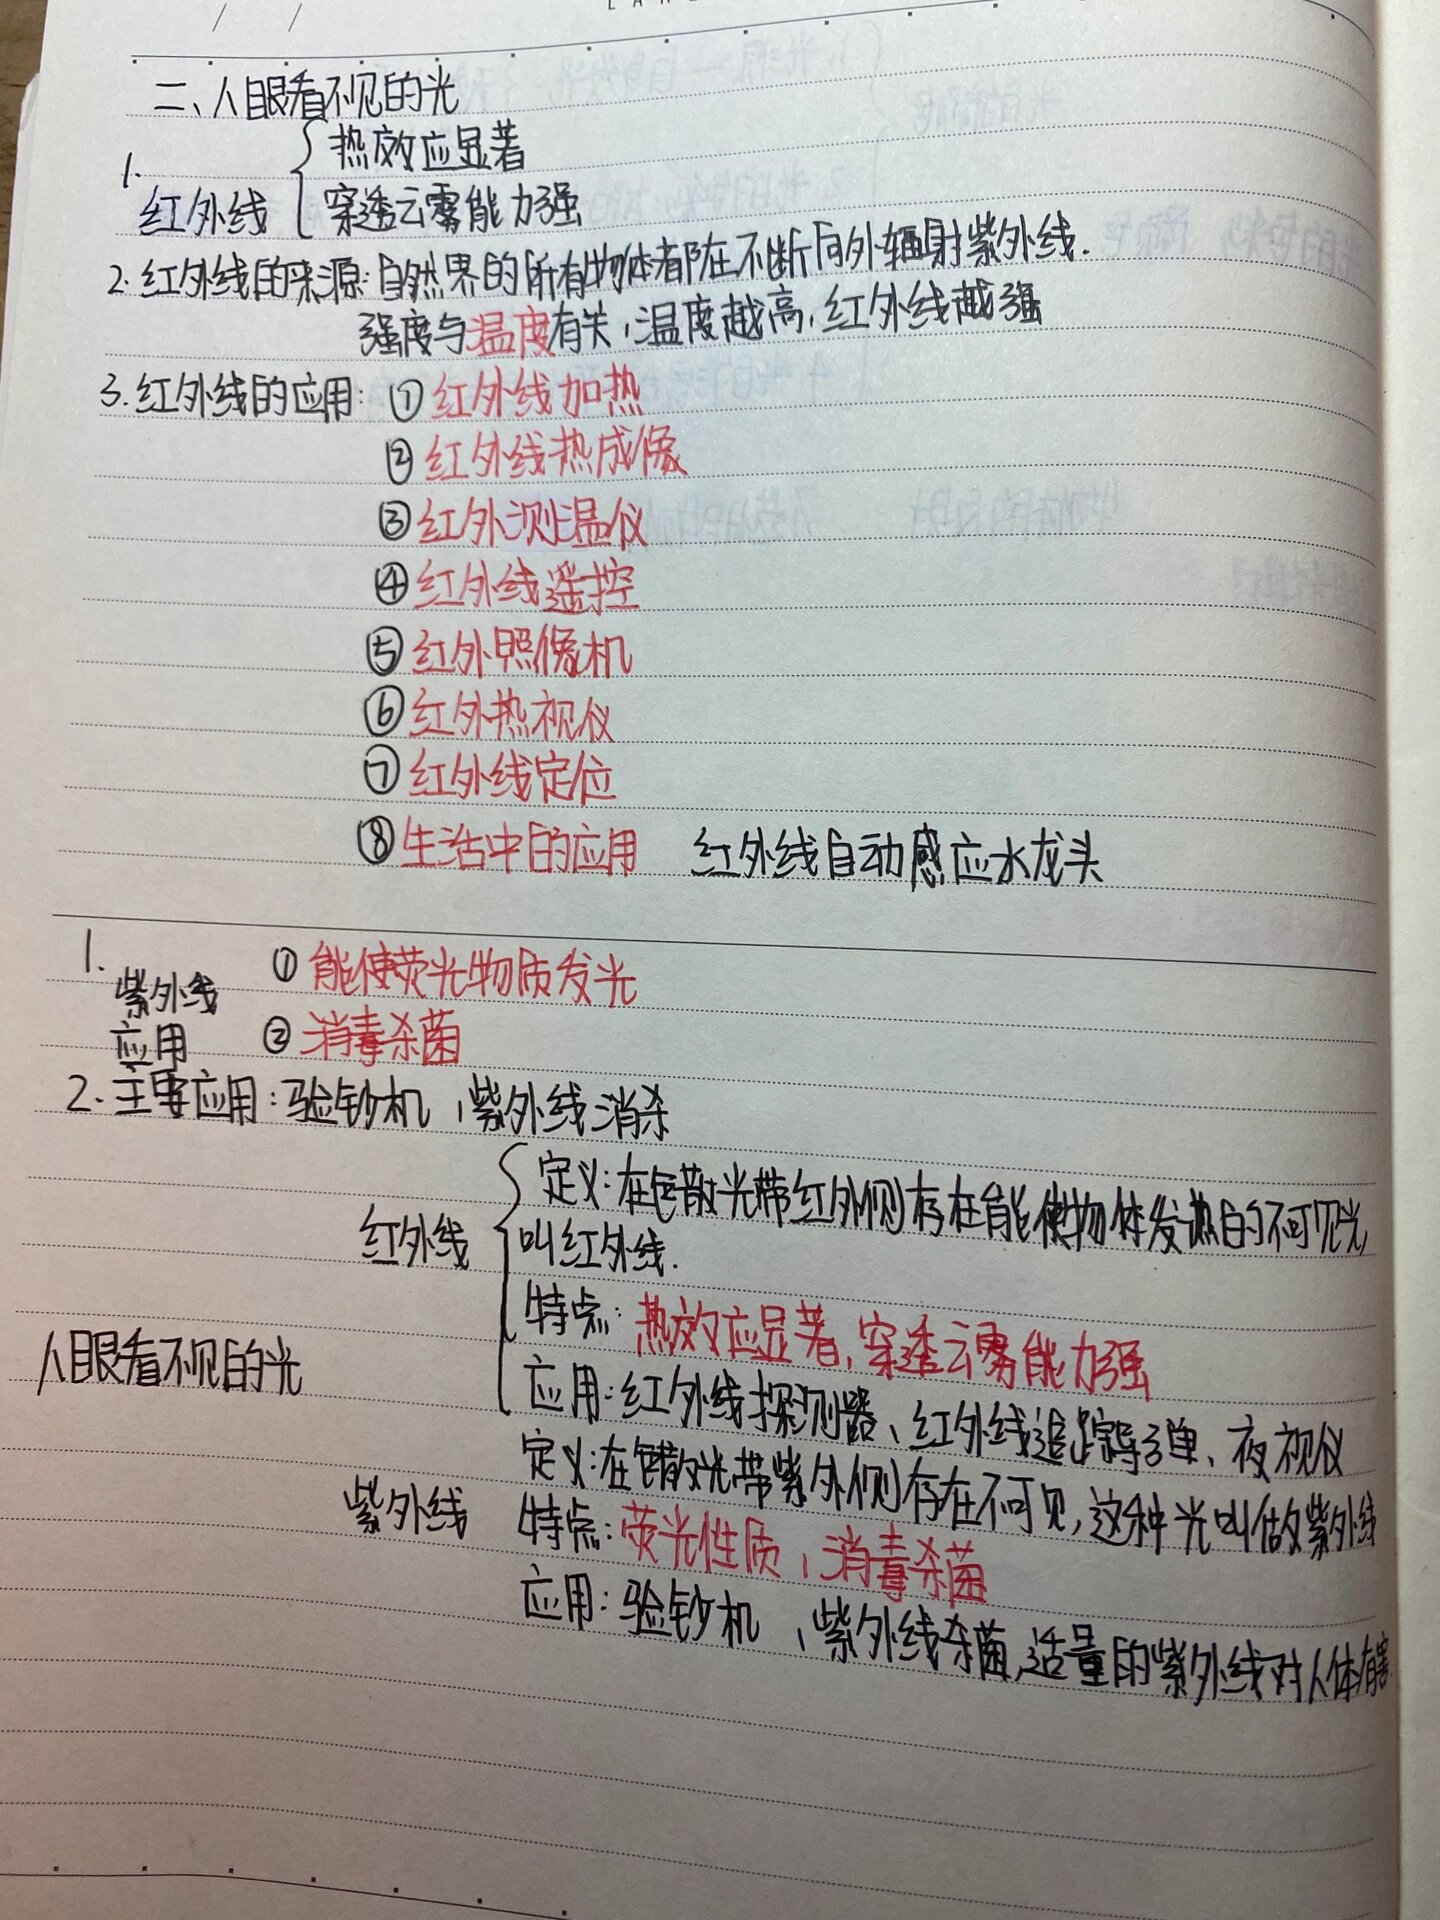 二、人眼看不见的光
1.
热效应显著
红外线 穿透云雾能力强
2.红外线的来源:自然界的所有物体都在不断向外辐射紫外线.
强度与温度有关,温度越高,红外线越强
3.红外线的应用: ①红外线加热
②红外线热成像
③红外测温仪
④红外线遥控
⑤红外照像机
⑥红外热视仪
⑦红外线定位
⑧生活中的应用 红外线自动感应水龙头
1.
紫外线 ①能使荧光物质发光
应用 ②消毒杀菌
2.主要应用:验钞机,紫外线消杀
人眼看不见的光
红外线
定义:在色散光带红外侧存在能使物体发热的不可见光,
叫红外线.
特点:热效应显著,穿透云雾能力强
应用:红外线探测器、红外线追踪导弹、夜视仪
紫外线
定义:在色散光带紫外侧存在不可见,这种光叫做紫外线
特点:荧光性质,消毒杀菌
应用:验钞机,紫外线杀菌,适量的紫外线对人体有害